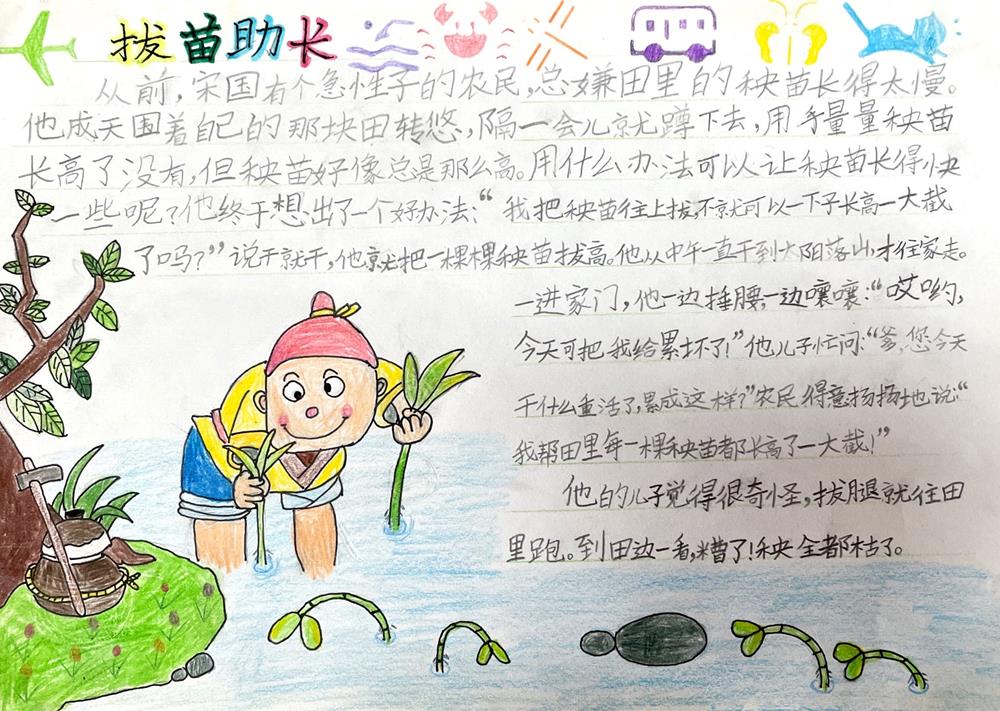 拔苗助长
从前,宋国有个急性子的农民,总嫌田里的秧苗长得太慢。
他成天围着自己的那块田转悠,隔一会儿就蹲下去,用手量量秧苗
长高了没有,但秧苗好像总是那么高。用什么办法可以让秧苗长得快
一些呢?他终于想出了一个好办法:“我把秧苗往上拔,不就可以一下子长高一大截
了吗?”说干就干,他就把一棵棵秧苗拔高。他从中午一直干到太阳落山,才往家走。
一进家门,他一边捶腰,一边嚷嚷:“哎哟,
今天可把我给累坏了!”他儿子忙问:“爹,您今天
干什么重活了,累成这样?”农民得意扬扬地说“
我帮田里每一棵秧苗都长高了一大截!”
他的儿子觉得很奇怪,拔腿就往田
里跑。到田边一看,糟了!秧全都枯了。